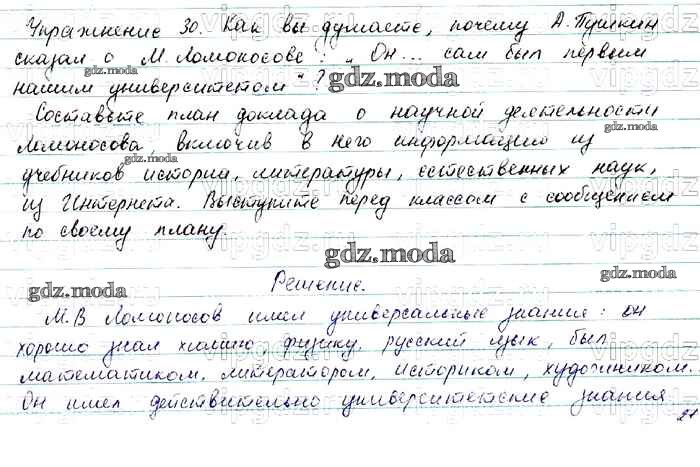 Упражнение 30. Как вы думаете, почему А. Пушкин
сказал о М. Ломоносове: „Он... сам был первым
нашим университетом“?
Составьте план доклада о научной деятельности
Ломоносова, включив в него информацию из
учебников истории, литературы, естественных наук,
из Интернета. Выступите перед классом с сообщением
по своему плану.
Решение.
М.В Ломоносов имел универсальные знания: он
хорошо знал химию, физику, русский язык, был
математиком, литератором, историком, художником.
Он имел действительно университетские знания
21
gdz.moda
gdz.moda
gdz.moda
gdz.moda
gdz.moda
gdz.moda
gdz.moda
gdz.moda
vipgdz.ru